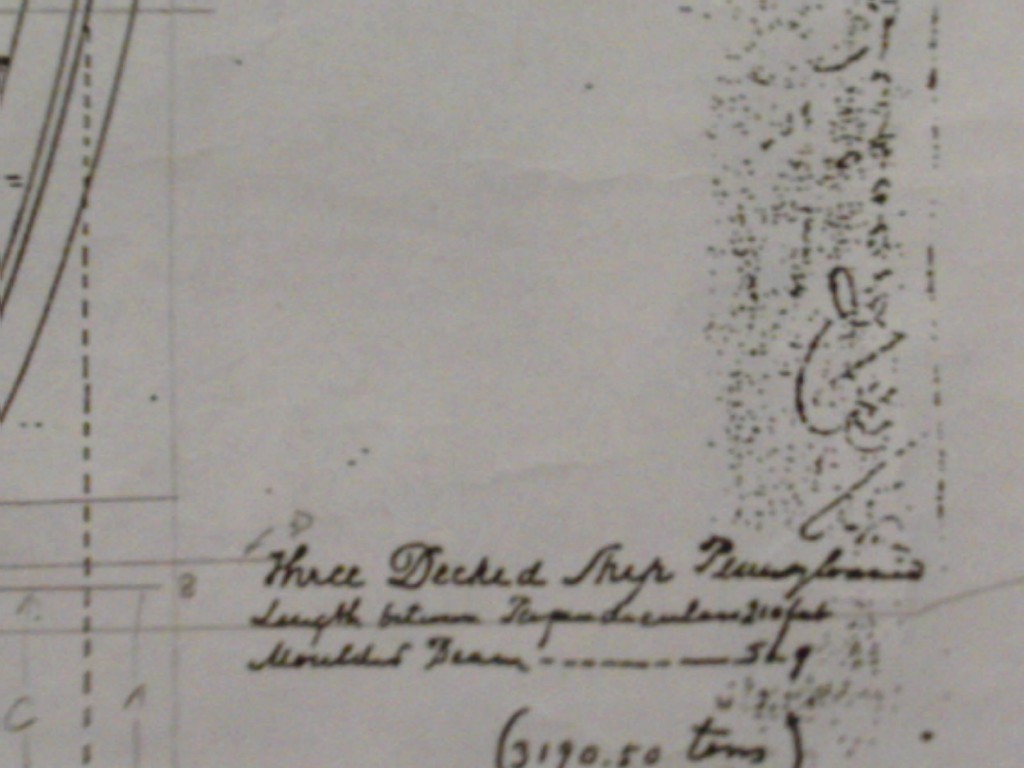 D
B
Three Decked Ship Pennsylvania
Length between Perpendiculars 210 feet
Moulded Beam 56.9
C
A
(3190.50 tons)